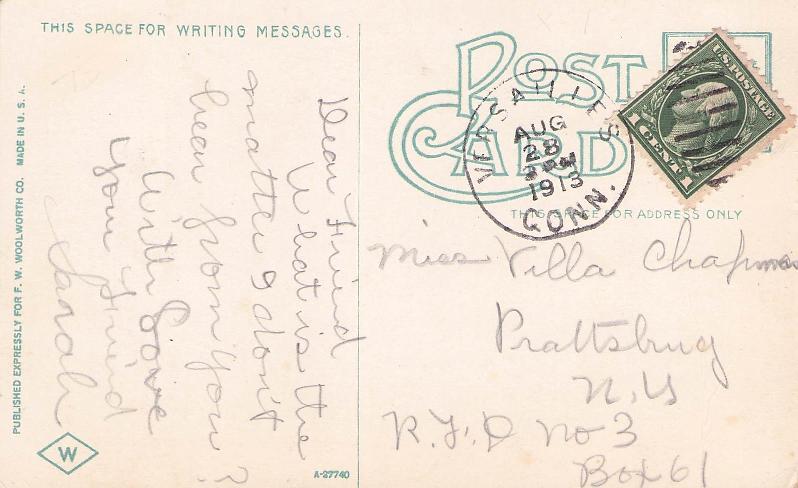 THIS SPACE FOR WRITING MESSAGES.
POST CARD
THIS SPACE FOR ADDRESS ONLY
U.S. POSTAGE
1 CENT 1
VERSAILLES
AUG
28
1913
CONN.
Dear Friend
What is the
matter I don't
hear from you?
With Love
your Friend
Sarah
Miss Villa Chapman
Prattsburg
N.Y
R.F.D No 3
Box 61
PUBLISHED EXPRESSLY FOR F. W. WOOLWORTH CO. MADE IN U. S. A.
W
A-27740